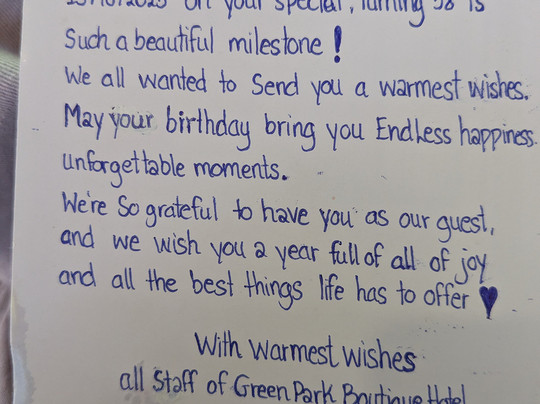 on your special, turning 58 is
Such a beautiful milestone!
We all wanted to Send you a warmest wishes.
May your birthday bring you Endless happiness.
unforgettable moments.
We're So grateful to have you as our guest,
and we wish you a year full of all of joy
and all the best things life has to offer ♥
With warmest wishes
all Staff of Green Park Boutique Hotel